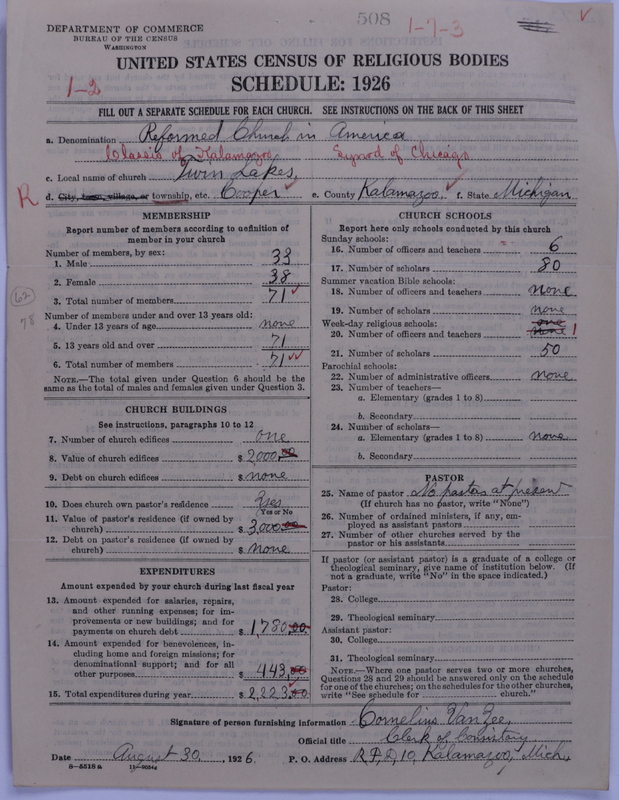 508
1-7-3
DEPARTMENT OF COMMERCE
BUREAU OF THE CENSUS
WASHINGTON
UNITED STATES CENSUS OF RELIGIOUS BODIES
1-2
SCHEDULE: 1926
FILL OUT A SEPARATE SCHEDULE FOR EACH CHURCH. SEE INSTRUCTIONS ON THE BACK OF THIS SHEET
a. Denomination Reformed Church in America
Classis of Kalamazoo Synod of Chicago
c. Local name of church Twin Lakes,
R d. City, town, village, or township, etc. Cooper e. County Kalamazoo, f. State Michigan
MEMBERSHIP
Report number of members according to definition of
member in your church
Number of members, by sex:
1. Male 33
2. Female 38
3. Total number of members 71
Number of members under and over 13 years old:
62
78
4. Under 13 years of age none
5. 13 years old and over 71
6. Total number of members 71
NOTE.—The total given under Question 6 should be the
same as the total of males and females given under Question 3.
CHURCH BUILDINGS
See instructions, paragraphs 10 to 12
7. Number of church edifices one
8. Value of church edifices $ 2,000.00
9. Debt on church edifices $ none
10. Does church own pastor's residence Yes
Yes or No
11. Value of pastor's residence (if owned by
church) $ 3,000.00
12. Debt on pastor's residence (if owned by
church) $ none
EXPENDITURES
Amount expended by your church during last fiscal year
13. Amount expended for salaries, repairs,
and other running expenses; for im-
provements or new buildings; and for
payments on church debt $ 1,780.00
14. Amount expended for benevolences, in-
cluding home and foreign missions; for
denominational support; and for all
other purposes $ 443.00
15. Total expenditures during year $ 2,223.00
CHURCH SCHOOLS
Report here only schools conducted by this church
Sunday schools:
16. Number of officers and teachers 6
17. Number of scholars 80
Summer vacation Bible schools:
18. Number of officers and teachers none
19. Number of scholars none
Week-day religious schools: one
20. Number of officers and teachers none 1
21. Number of scholars 50
Parochial schools:
22. Number of administrative officers none
23. Number of teachers—
a. Elementary (grades 1 to 8)
b. Secondary
24. Number of scholars—
a. Elementary (grades 1 to 8) none
b. Secondary
PASTOR
25. Name of pastor No pastor at present
(If church has no pastor, write "None")
26. Number of ordained ministers, if any, em-
ployed as assistant pastors
27. Number of other churches served by the
pastor or his assistants
If pastor (or assistant pastor) is a graduate of a college or
theological seminary, give name of institution below. (If
not a graduate, write "No" in the space indicated.)
Pastor:
28. College
29. Theological seminary
Assistant pastor:
30. College
31. Theological seminary
NOTE.—Where one pastor serves two or more churches,
Questions 28 and 29 should be answered only on the schedule
for one of the churches; on the schedules for the other churches,
write "See schedule for church."
Signature of person furnishing information Cornelius VanZee,
Official title Clerk of Consistory
Date August 30, 1926. P. O. Address R,F,D,10, Kalamazoo, Mich.
8-5518 a 11-9024a